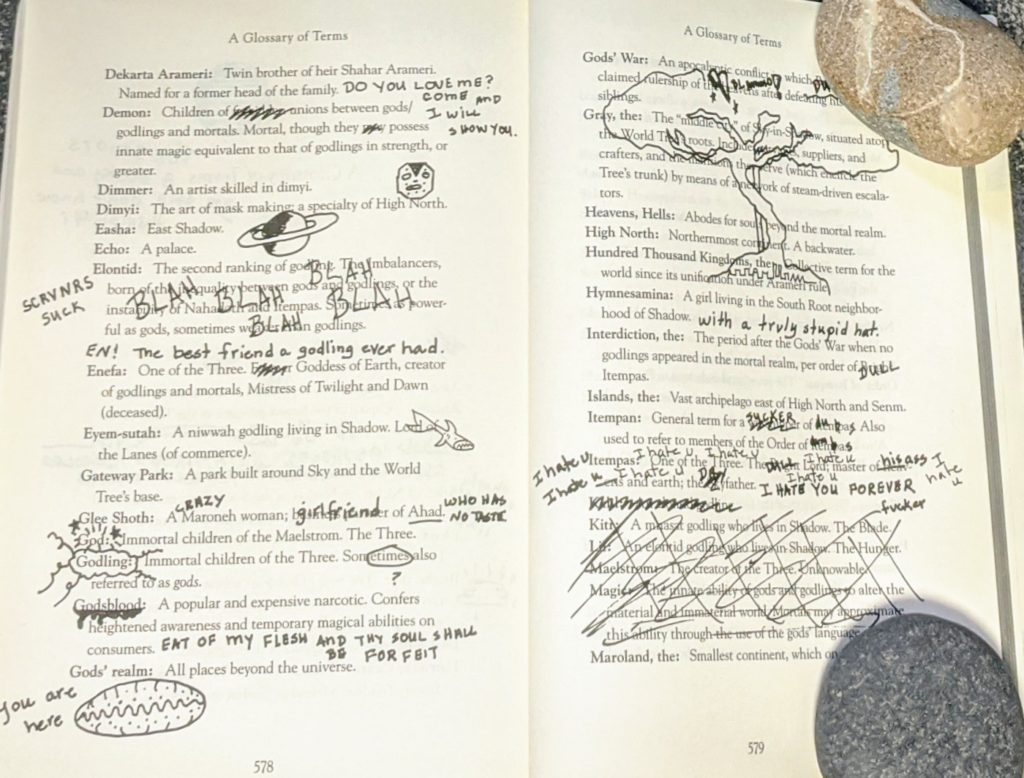 A Glossary of Terms
Dekarta Arameri: Twin brother of heir Shahar Arameri.
Named for a former head of the family. DO YOU LOVE ME?
COME AND
Demon: Children of unions between gods/
I WILL
godlings and mortals. Mortal, though they possess
SHOW YOU.
innate magic equivalent to that of godlings in strength, or
greater.
Dimmer: An artist skilled in dimyi.
Dimyi: The art of mask making; a specialty of High North.
Easha: East Shadow.
Echo: A palace.
Elontid: The second ranking of godling. The imbalancers,
BLAH
born of the inequality between gods and godlings, or the
SCRVNRS
SUCK
BLAH BLAH BLAH
instability of Nahadoth and Itempas. Sometimes as power-
BLAH
ful as gods, sometimes weaker than godlings.
EN! The best friend a godling ever had.
Enefa: One of the Three. Goddess of Earth, creator
of godlings and mortals, Mistress of Twilight and Dawn
(deceased).
Eyem-sutah: A niwwah godling living in Shadow. Lord of
the Lanes (of commerce).
Gateway Park: A park built around Sky and the World
Tree's base.
CRAZY
WHO HAS
Glee Shoth: A Maroneh woman; girlfriend of Ahad.
NO TASTE
God: Immortal children of the Maelstrom. The Three.
Godling: Immortal children of the Three. Sometimes also
referred to as gods.
?
Godsblood: A popular and expensive narcotic. Confers
heightened awareness and temporary magical abilities on
consumers. EAT OF MY FLESH AND THY SOUL SHALL
BE FORFEIT
Gods' realm: All places beyond the universe.
you are
here
578
A Glossary of Terms
Gods' War: An apocalyptic conflict which
claimed rulership of the heavens after defeating
siblings.
Gray, the: The "middle city" of Sky-in-Shadow, situated atop
the World Tree's roots. Includes suppliers, and
crafters, and the mansions they serve (which encircle the
Tree's trunk) by means of a network of steam-driven escala-
tors.
Heavens, Hells: Abodes for souls beyond the mortal realm.
High North: Northernmost continent. A backwater.
Hundred Thousand Kingdoms, the: Collective term for the
world since its unification under Arameri rule.
Hymnesamina: A girl living in the South Root neighbor-
hood of Shadow. with a truly stupid hat.
Interdiction, the: The period after the Gods' War when no
godlings appeared in the mortal realm, per order of
Itempas.
Islands, the: Vast archipelago east of High North and Senm.
SUCKER
Itempan: General term for a of Also
used to refer to members of the Order of
I hate u I hate u I hate u I hate u
Itempas: One of the Three. The Lord; master of his ass
I hate u I hate u I hate u
and earth; the father. I HATE YOU FOREVER
I hate u
fucker
Kitr: A mnasat godling who lives in Shadow. The Blade.
Lil: An elontid godling who lives in Shadow. The Hunger.
Maelstrom: The creator of the Three. Unknowable.
Magic: The innate ability of gods and godlings to alter the
material and immaterial world. Mortals may approximate
this ability through the use of the gods' language.
Maroland, the: Smallest continent, which
579